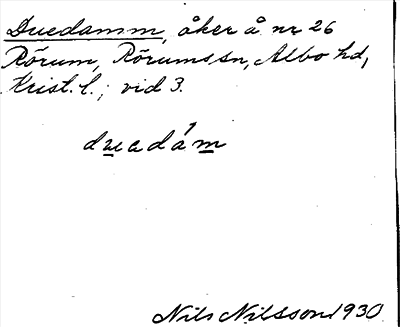 Duedamm, åker å nr 26
Rörum, Rörums sn, Albo hd,
Krist. l.; vid 3.
duadám
Nils Nilsson 1930